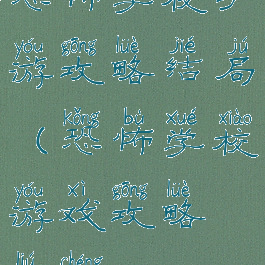 yóu gōng lüè jié jú
游攻略结局
kǒng bù xué xiào
(恐怖学校
yóu xì gōng lüè
游戏攻略